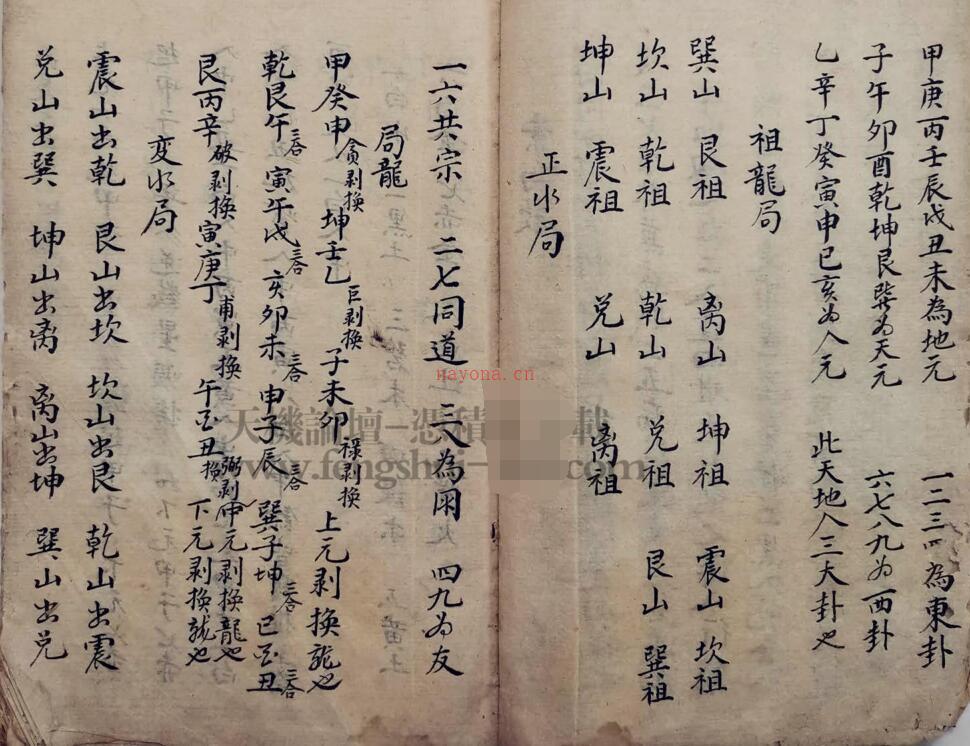 甲庚丙壬辰戌丑未為地元 一二三四為東卦
子午卯酉乾坤艮巽为天元 六七八九为西卦
乙辛丁癸寅申巳亥为人元 此天地人三大卦也
祖龍局
巽山 艮祖 离山 坤祖 震山 坎祖
坎山 乾祖 乾山 兑祖 艮山 巽祖
坤山 震祖 兑山 离祖
正水局
一六共宗 二七同道 三八為朋 四九为友
局龍
甲癸申貪剥換 坤壬乙巨剥換 子未卯禄剥換 上元剥換龍也
乾艮午三合 寅午戌三合 亥卯未三合 申子辰三合 巽子坤三合 巳酉丑三合
艮丙辛破剥換 寅庚丁甫剥換 午酉丑弼剥換 中元剥換龍也
下元剥換龍也
变水局
震山出乾 艮山出坎 坎山出艮 乾山出震
兑山出巽 坤山出离 离山出坤 巽山出兑
nayona.cn
天機論壇-憑積 載
www.fengshui-